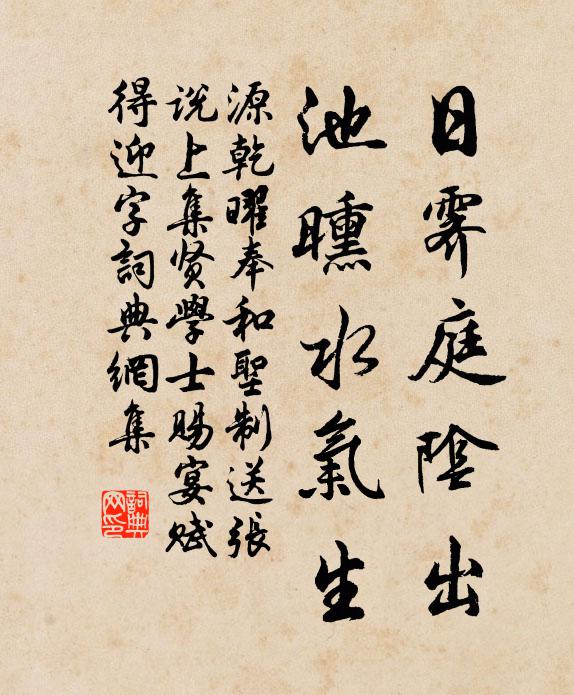 日霽庭陰出
池曛水氣生
源乾曜奉和聖制送張
说上集贤學士賜宴赋
得迎字詞典網集
詞典
网印